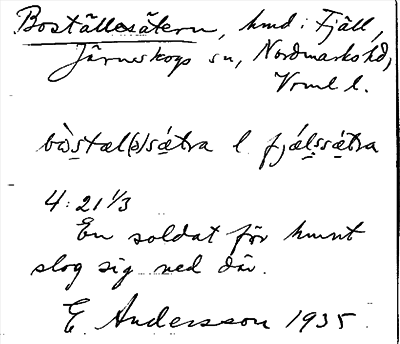 Boställesätern, hmd i Fjäll,
Järnskogs sn, Nordmarks hd,
Vrml l.
bòstæl(ə)sǽtra l. fjǽlssǽtra
4:21 1/3
En soldat för hmnt
slog sig ned där.
E. Andersson 1935.